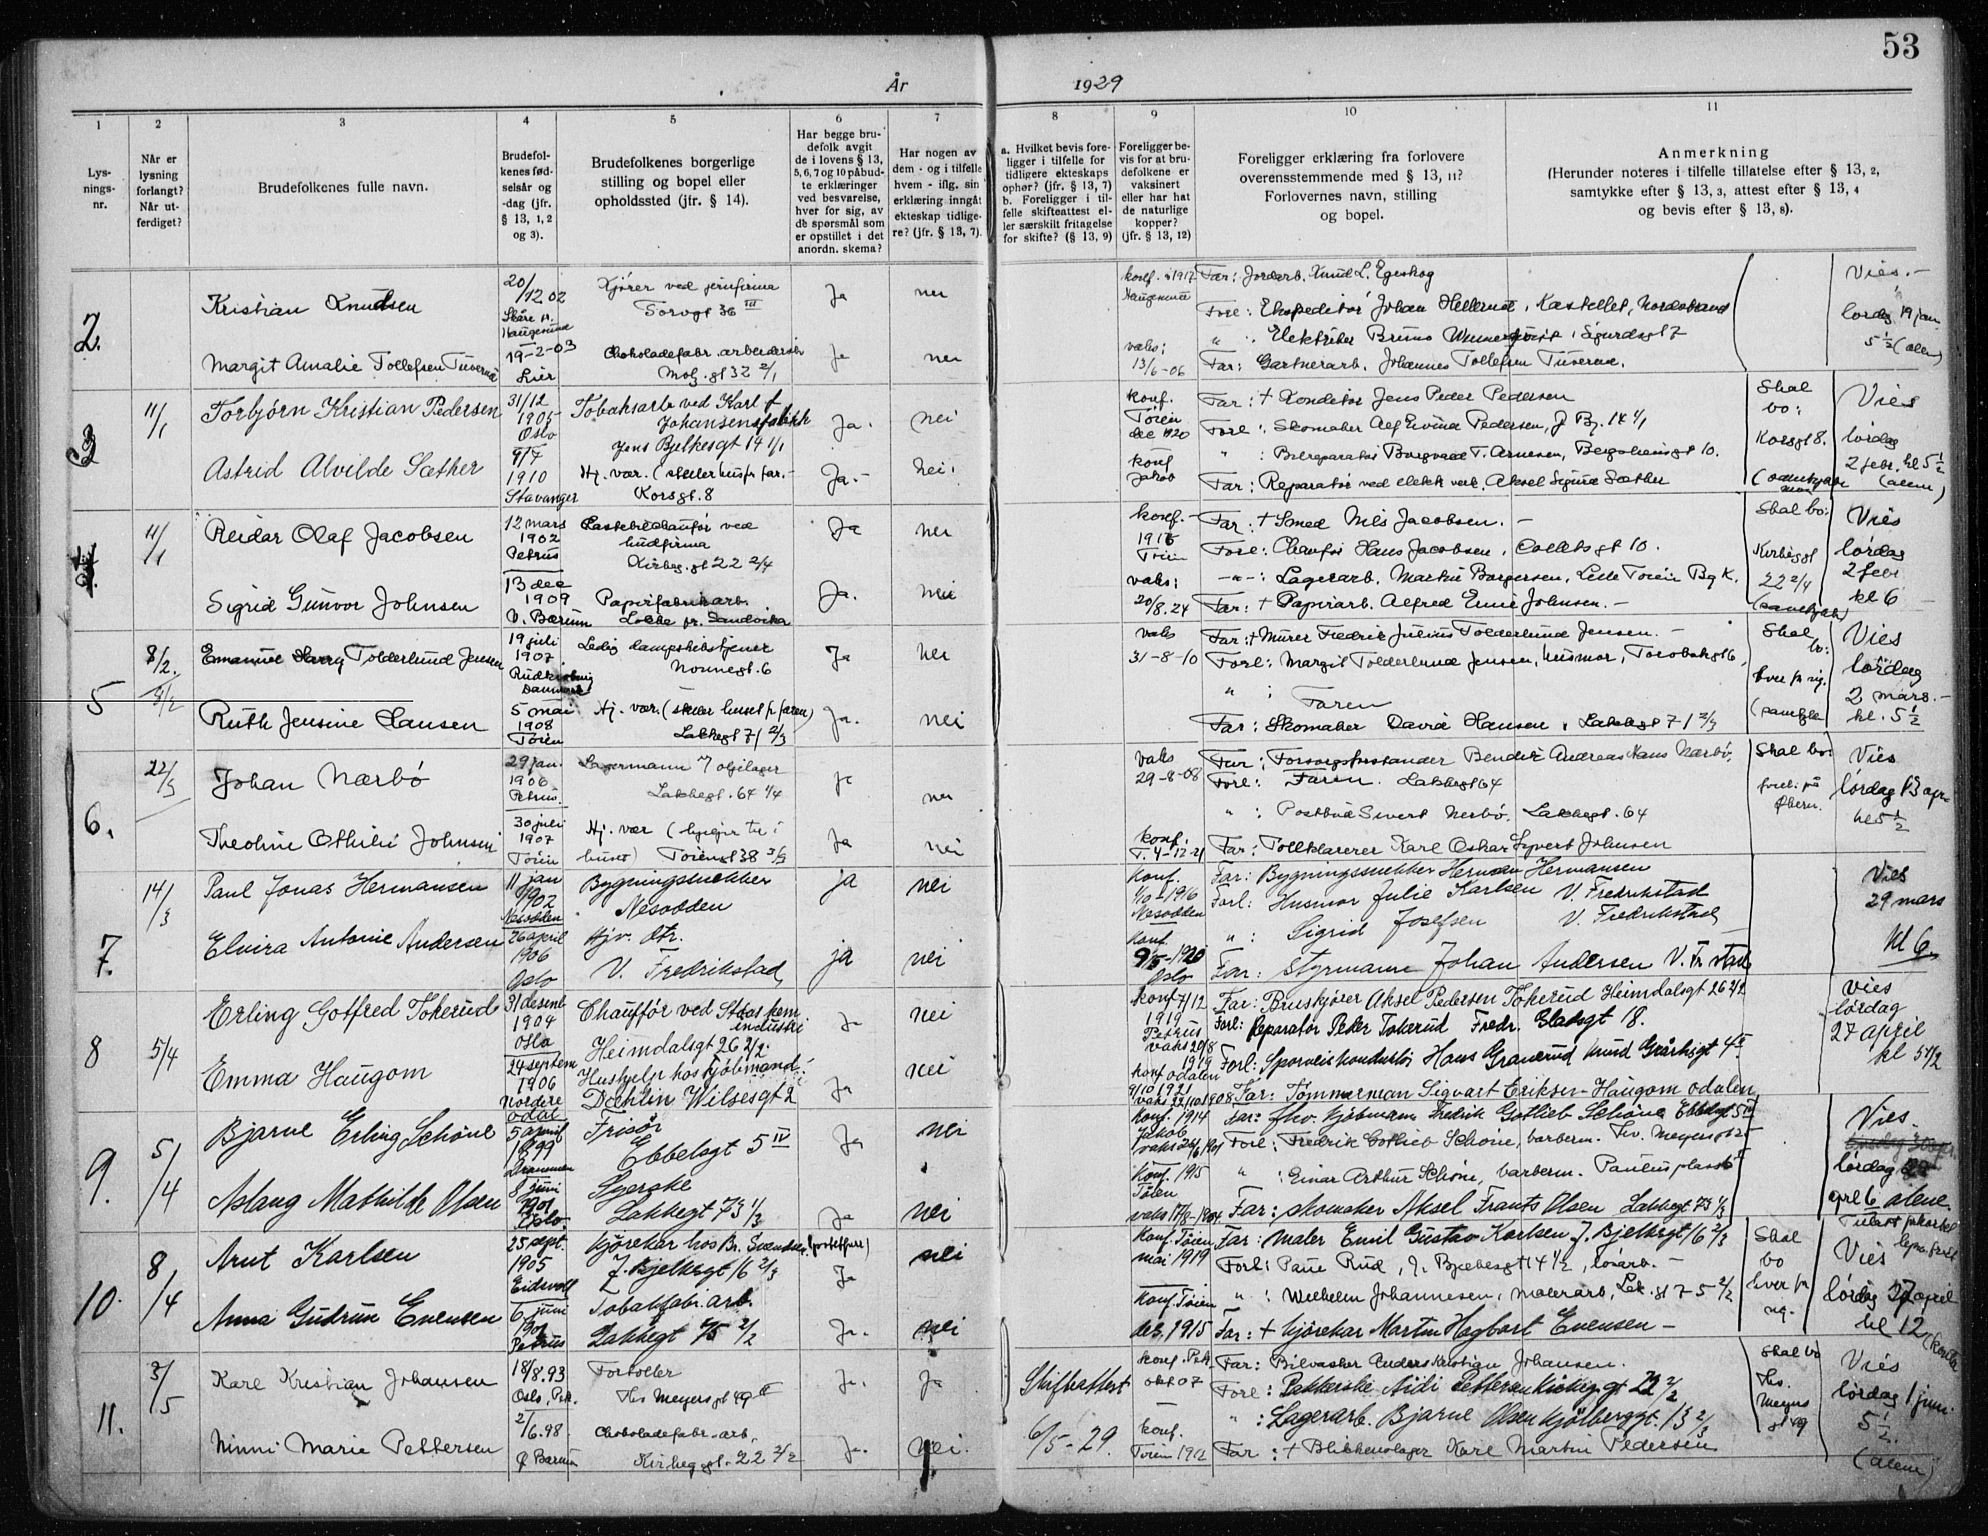 53
År 1929
1 2 3 4 5 6 7 8 9 10 11
Lys-
nings-
nr.
Når er
lysning
forlangt?
Når ut-
ferdiget?
Brudefolkenes fulle navn.
Brudefol-
kenes fød-
selsår og
-dag (jfr.
§ 13, 1, 2
og 3).
Brudefolkenes borgerlige
stilling og bopel eller
opholdssted (jfr. § 14).
Har begge bru-
defolk avgit
de i lovens § 13,
5, 6, 7 og 10 påbud-
te erklæringer
ved besvarelse,
hver for sig, av
de spørsmål som
er opstillet i det
anordn. skema?
Har nogen av
dem - og i tilfelle
hvem - iflg. sin
erklæring inngåt
ekteskap tidlige-
re? (jfr. § 13, 7).
a. Hvilket bevis fore-
ligger i tilfelle for
tidligere ekteskaps
ophør? (jfr. § 13, 7)
b. Foreligger i til-
felle skifteattest el-
ler særskilt fritagelse
for skifte? (§ 13, 9)
Foreligger be-
vis for at bru-
defolkene er
vaksinert
eller har hat
de naturlige
kopper?
(jfr. § 13, 12)
Foreligger erklæring fra forlovere
overensstemmende med § 13, 11?
Forlovernes navn, stilling
og bopel.
Anmerkning
(Herunder noteres i tilfelle tillatelse efter § 13, 2,
samtykke efter § 13, 3, attest efter § 13, 4
og bevis efter § 13, 8).
2.
Kristian Knudsen
20/12.02
Skåre p.
Haugesund
Kjører ved
Torvgt 36 III
Ja
nei
konf. i 1917
Haugesund
Far: Jordarb. Knud L. Egeskog
Forl: Ekspeditør Johan Hellerud, Kastellet, Nordstrand
" : Elektriker Bruno, Sigurdsgt 7
Vies.-
lørdag 19 jan.
5 1/2 (alene)
Margit Amalie Tollefsen Tuverud
19-2-03
Lier
Chokoladefabr. arbeiderske
Motz. gt 32 2/1
Ja
nei
vaks:
13/6-06
Far: Gartnerarb. Johannes Tollefsen Tuverud.
3
11/1
Torbjørn Kristian Pedersen
31/12
1905
Oslo
Tobaksarb ved Karl
Johansens fabrikk
Jens Bjelkesgt 14 1/1
Ja.
nei
konf.
Tøien
dec 1920
Far: † Konditor Jens Peder Pedersen
Forl: Skomaker Alf Eivind Pedersen, J Bj. 14 1/1
" : Bilreparatør Borgvald T. Arnesen, Bergsliensgt 10.
Skal
bo:
Korsgt 8.
Vies
lørdag
2 febr. kl 5 1/2
(alene)
Astrid Alvilde Sæther
9/7
1910
Stavanger
Hj. vær. (steller hus for far.-
Korsgt. 8
Ja.-
nei
konf
Jakob
Far: Reparatør ved elektr. verk. Aksel Sigurd Sæther
4.
11/1
Reidar Olaf Jacobsen
12 mars
1902
Petrus
Lastebilchaufør ved
hudfirma
Kirkeg. gt 22 2/4
Ja
nei
konf.-
1916
Tøien
Far: † Smed Nils Jacobsen.-
Forl: Chaufør Hans Jacobsen, Colletsgt 10.
-"-: Lagerarb. Martin Borgersen, Lille Tøien Bg K.
Skal bo:
Kirkeg gt
22 2/4
Vies
lørdag
2 febr
kl 6
Sigrid Gunvor Johnsen
13 dec
1909
V. Bærum
Papirfabrikarb.
Løkke pr. Sandvika
Ja.
nei
vaks:
20/8.24
Far: † Papirarb. Alfred Emil Johnsen.-
5
8/2.
Emanuel Harry Tolderlund Jensen
19 juli
1907
Rudkøbing
Danmark
Ledig dampskibstjener
Nonnegt. 6
Ja
nei
vaks
31-8-10
Far: † Murer Fredrik Julius Tolderlund Jensen.-
Forl: Margit Tolderlund Jensen, husmor, Torvbakgt 6,
" : Faren
Skal
bo:
hver for sig.
Vies
lørdag
2 mars.-
kl. 5 1/2
Ruth Jensine Hansen
5 mai
1908
Tøien
Hj. vær. (steller huset for faren)
Lakkegt 71 2/3
Ja.
nei
Far: Skomaker David Hansen, Lakkegt 71 2/3
6.
22/3
Johan Nærbö
29 jan.
1906
Petrus.
Lagermann i oljelager
Lakkegt. 64 1/4
Ja
nei
vaks
29-8-08
Far: Forsorgsforstander Bendik Andreas Hans Nærbö,
Forl: Faren. Lakkegt 64
" : Postbud Sivert Nerbö. Lakkegt. 64
Skal bo:
Vies
lørdag 13 apr.
kl 5 1/2
Theoline Othilie Johnsen
30 juli
1907
Tøien
Hj. vær (hjelper til i
huset) Tøiengt 38 3/2
Ja
nei
konf.
T. 4-12-21
Far: Tollklarerer Karl Oskar Syvert Johnsen
7.
14/3
Paul Jonas Hermansen
11 jan
1902
Nesodden
Bygningssnekker
Nesodden
ja
nei
konf.
1/10-1916
Nesodden
Far: Bygningssnekker Herman Hermansen
Forl: Husmor Julie Karlsen V. Fredrikstad
" : Sigrid Josefsen V. Fredrikstad
Vies
29 mars
kl 6
Elvira Antonie Andersen
26 april
1906
Oslo
Hjv. dtr.
V. Fredrikstad
ja
nei
konf.
9/5-1920
Oslo
Far: Styrmann Johan Andersen V. Fr.stad
8
5/4
Erling Gotfred Tokerud
31 desemb
1904
Oslo
Chaufför ved Staas kem
industri
Heimdalsgt 26 2/2
Ja
nei
konf 7/12
1919
Petrus
vaks 20/8
1919
Far: Bruskjører Aksel Pedersen Tokerud Heimdalsgt 26 2/2
Forl: Reparatør Peder Tokerud Fredr. Gladsgt 18.
Forl: Sporveiskonduktör Hans Granerud Knud Gråhsgt 4
vies
lørdag
27 april
kl 5 1/2
Emma Haugom
24 septem
1906
Nordre
odal
Hushjelp hos kjöbmand
Dæhlin Wilsesgt 2
Ja
nei
konf odalen
9/10 1921
vaks 22/10 1908
Far: Tömmerman Sigvart Eriksen-Haugom odalen
9.
5/4
Bjarne Erling Schöne
5 april
1899
Drammen
Frisör
Ebbelsgt 5 IV
Ja
nei
konf. 1914
Jakob
Far: fhv. kjöbmann Fredrik Gotlieb Schöne Ebbelsgt 5 IV
Forl: Fredrik Gotlieb Schöne, barberm. Thv. Meyersgt
" : Einar Arthur Schöne, barberm. Paulus plass
Vies.
lørdag
kl 6 alene
Aslaug Mathilde Olsen
8 juni
1901
Oslo
Syerske
Lakkegt 73 1/3
Ja
nei
Konf. 1915
Töien
vaks 17/8-1904
Far: Skomaker Aksel Frants Olsen Lakkegt 73 1/3
10.
8/4
Arnt Karlsen
25 sept.
1905
Eidsvoll
Kjörekar hos Br. Svendsen
J. Bjelkesgt 16 2/3
Ja
nei
Konf. Töien
mai 1919
Far: maler Emil Gustav Karlsen J. Bjelkesgt 16 2/3
Forl: Paul Rud, J. Bjelkesgt 14 1/2, løsarb.-
" : Wilhelm Johannesen, malerarb, Lak. gt 75 2/2
Skal
bo
hver for
sig.
Vies
lørdag 27 april
kl 12
Anna Gudrun Evensen
6 juni
1901
Petrus
Tobakfabr. arb.
Lakkegt 75 2/2
Ja.
nei
Konf. Töien
des. 1915
Far: † Kjörekar Martin Hagbart Evensen-
11.
3/5
Karl Kristian Johansen
18/8.93
Oslo, Pet.
Fortoller
Ths Meyersgt 49 II
Ja.
Ja
Skifteattest
6/5-29.
konf. Pet.
okt 07
Far: Bilvasker Anders Kristian Johansen.
Forl: Pakkerske Aidi Pettersen Kirkeg. gt 22 2/2
" : Lagerarb. Bjarne Olsen Kjölberggt. 13 2/3
Skal bo
Ths.
Meyers
gt 49
Vies
lørdag 1 juni
5 1/2.
(alene)
Ninni Marie Pettersen
2/6.98
Ø Bærum
Chokoladefabr-arb.
Kirkeg gt. 22 2/2
Ja.
nei.
konf.
Tøien 1912
Far: † Blikkenslager Karl Martin Pedersen